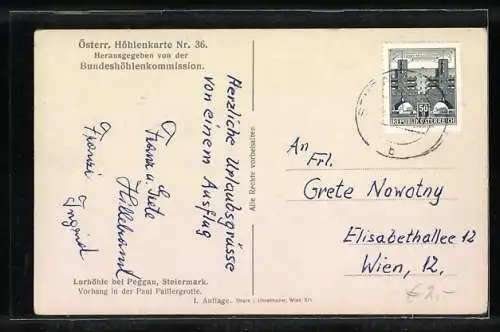 Österr. Höhlenkarte Nr. 36.
Herausgegeben von der
Bundeshöhlenkommission.
Herzliche Urlaubsgrüsse
von einem Ausflug
Franz u. Grete
Hillebrand
Franzi Ingrid
Lurhöhle bei Peggau, Steiermark.
Vorhang in der Paul Pallergrotte.
Alle Rechte vorbehalten
1. Auflage.
50
REPUBLIK ÖSTERREICH
An
Frl.
Grete Nowotny
Elisabethallee 12
Wien, 12.
€ 2,-